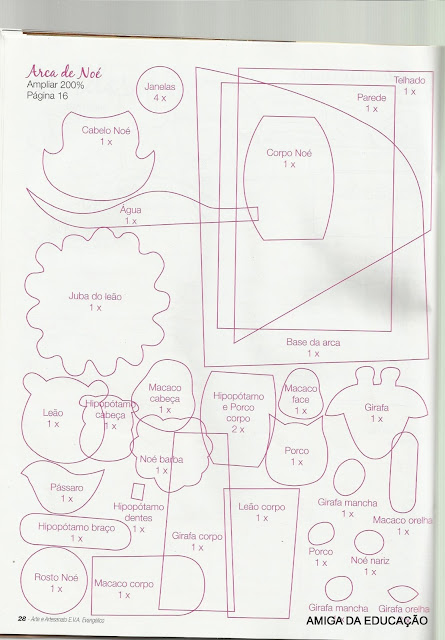 Arca de Noé
Ampliar 200%
Página 16
Janelas
4 x
Telhado
1 x
Parede
1 x
Cabelo Noé
1 x
Corpo Noé
1 x
Água
1 x
Juba do leão
1 x
Base da arca
1 x
Leão
1 x
Hipopótamo
cabeça
1 x
Macaco
cabeça
1 x
Hipopótamo
e Porco
corpo
2 x
Macaco
face
1 x
Girafa
1 x
Noé barba
1 x
Porco
1 x
Pássaro
1 x
Hipopótamo
dentes
1 x
Girafa mancha
1 x
Macaco orelha
1 x
Hipopótamo braço
1 x
Girafa corpo
1 x
Leão corpo
1 x
Porco
1 x
Noé nariz
1 x
Rosto Noé
1 x
Macaco corpo
1 x
Girafa mancha
1 x
Girafa orelha
1 x
28 - Arte e Artesanato E.V.A. Evangélico
AMIGA DA EDUCAÇÃO